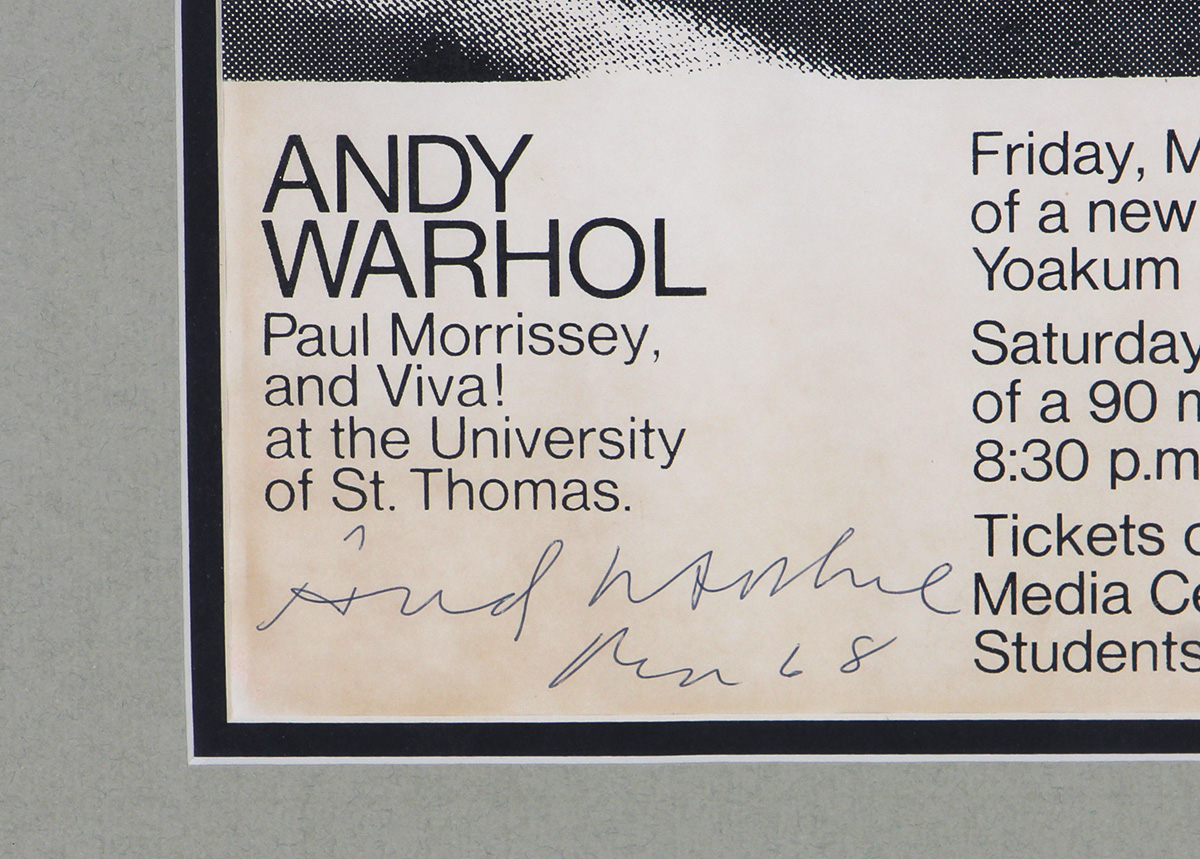 ANDY
WARHOL
Paul Morrissey,
and Viva!
at the University
of St. Thomas.
Andy Warhol
68
Friday, M
of a new
Yoakum
Saturday
of a 90 m
8:30 p.m
Tickets
Media Ce
Students